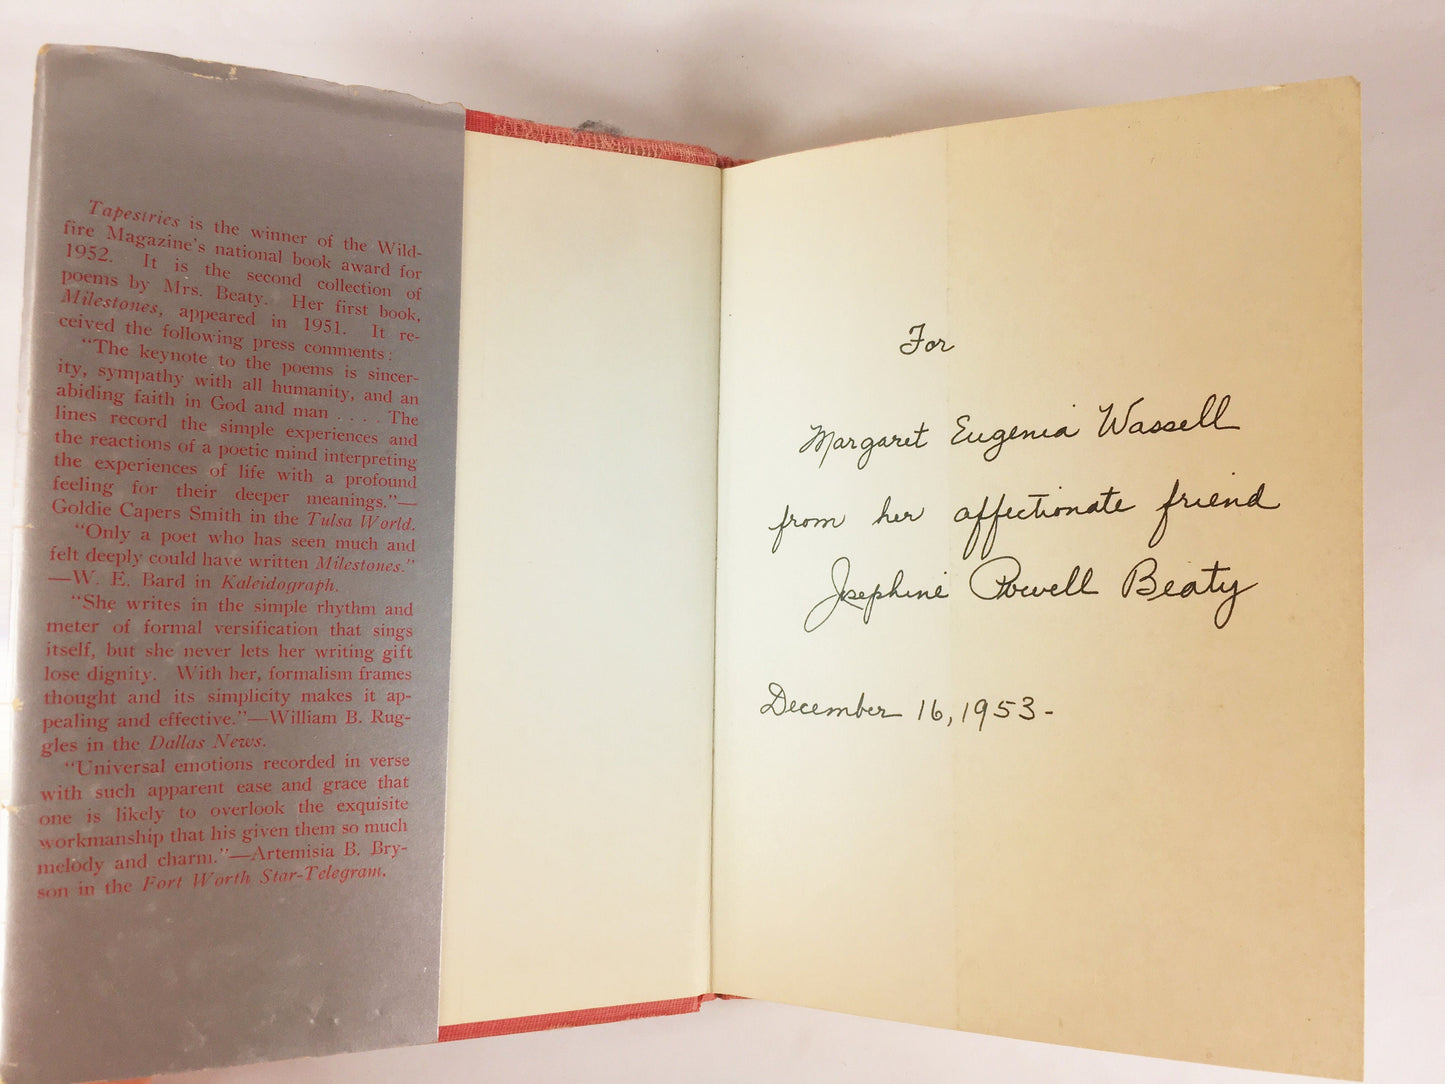 Tapestries is the winner of the Wild-
fire Magazine's national book award for
1952. It is the second collection of
poems by Mrs. Beaty. Her first book,
Milestones, appeared in 1951. It re-
ceived the following press comments:
"The keynote to the poems is sincer-
ity, sympathy with all humanity, and an
abiding faith in God and man . . . . The
lines record the simple experiences and
the reactions of a poetic mind interpreting
the experiences of life with a profound
feeling for their deeper meanings."—
Goldie Capers Smith in the Tulsa World.
"Only a poet who has seen much and
felt deeply could have written Milestones."
—W. E. Bard in Kaleidograph.
"She writes in the simple rhythm and
meter of formal versification that sings
itself, but she never lets her writing gift
lose dignity. With her, formalism frames
thought and its simplicity makes it ap-
pealing and effective."—William B. Rug-
gles in the Dallas News.
"Universal emotions recorded in verse
with such apparent ease and grace that
one is likely to overlook the exquisite
workmanship that his given them so much
melody and charm."—Artemisia B. Bry-
son in the Fort Worth Star-Telegram.
For
Margaret Eugenia Wassell
from her affectionate friend
Josephine Powell Beaty
December 16, 1953-